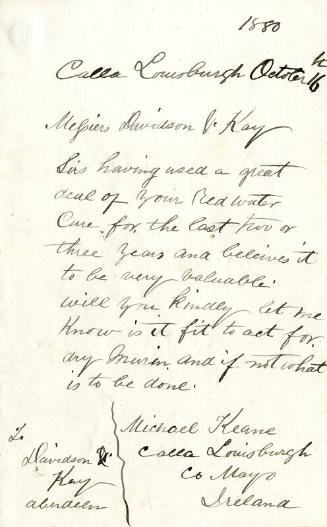 1880
Calla Louisburgh October 16th
Messiers Davidson & Kay
Sirs having used a great
deal of your Red water
Cure for the last two or
three years and beleives it
to be very valuable
will you kindly let me
Know is it fit to act for
dry Murin and if not what
is to be done.
Michael Keane
Calla Louisburgh
Co Mayo
Ireland
To
Davidson &
Kay
aberdeen